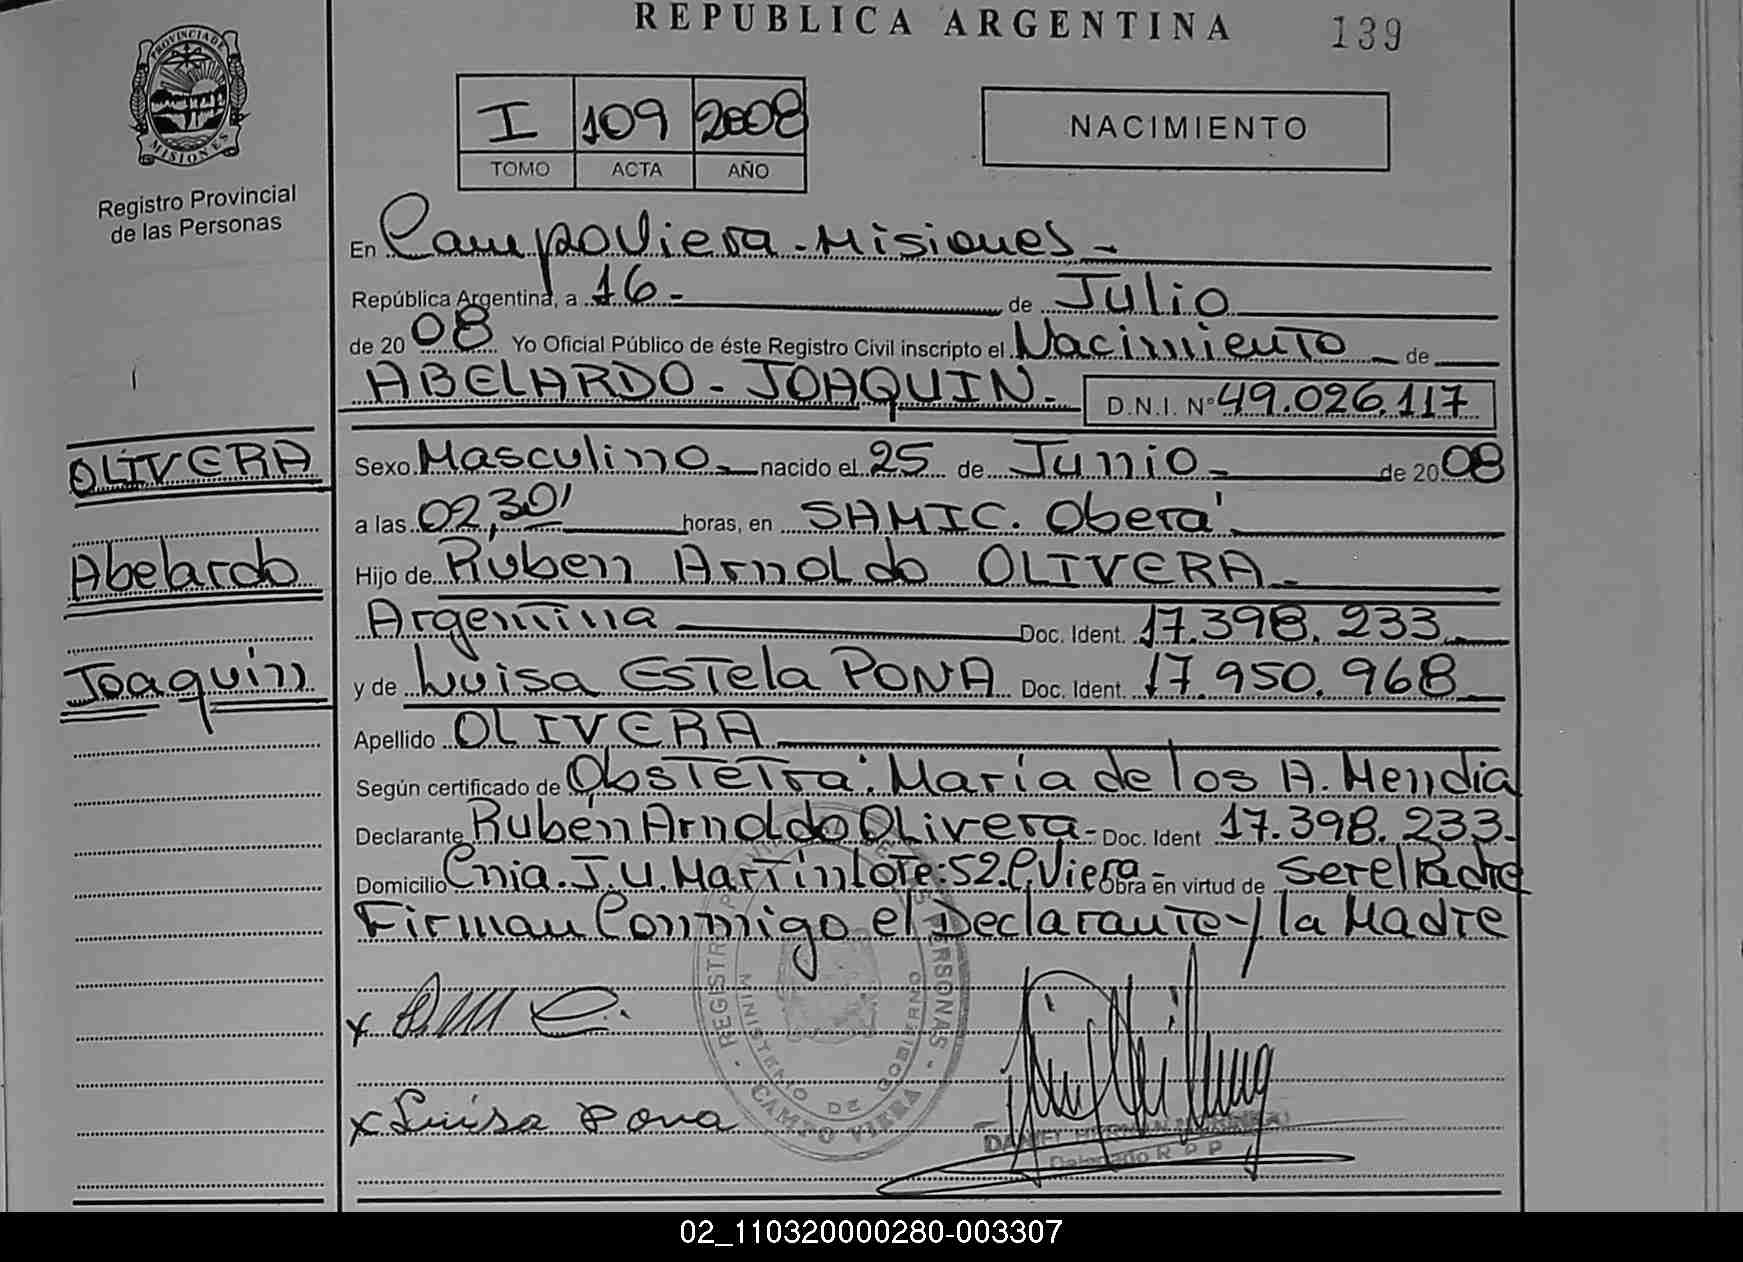 REPUBLICA ARGENTINA 139
PROVINCIA DE MISIONES
Registro Provincial
de las Personas
I 109 2008
TOMO ACTA AÑO
NACIMIENTO
En Campo Viera - Misiones -
República Argentina, a 16 - de Julio
de 20 08 Yo Oficial Público de éste Registro Civil inscripto el Nacimiento de
ABELARDO - JOAQUIN - D.N.I. Nº 49.026.117
OLIVERA
Abelardo
Joaquin
Sexo Masculino - nacido el 25 de Junio - de 20 08
a las 02,30' horas, en SAMIC. Oberá
Hijo de Ruben Arnoldo OLIVERA -
Argentina Doc. Ident. 17.398.233
y de Luisa Estela PONA Doc. Ident. 17.950.968
Apellido OLIVERA
Según certificado de Obstetra: María de los A. Mendia
Declarante Ruben Arnoldo Olivera - Doc. Ident 17.398.233 -
Domicilio Cnia. J.U. Martin lote: 52. C. Viera - Obra en virtud de ser el Padre
Firman Conmigo el Declarante y la Madre
x
x Luisa Pona
REGISTRO PROVINCIAL DE LAS PERSONAS
MINISTERIO DE GOBIERNO
CAMPO VIERA
DANIEL
Delegado R P P
02_110320000280-003307